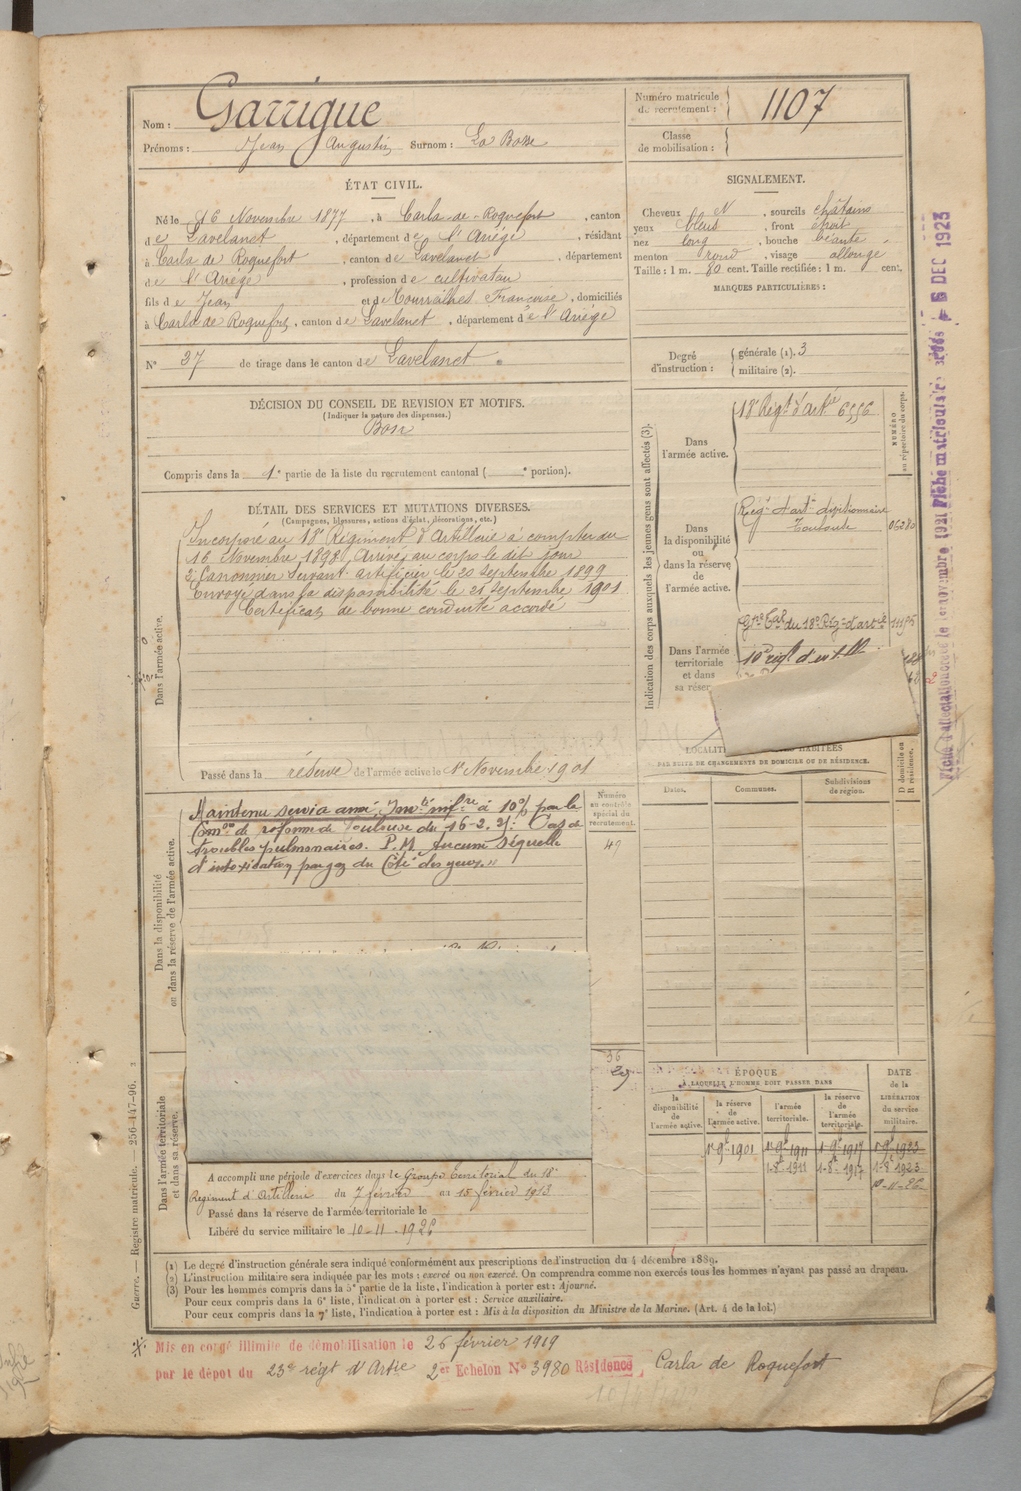 Nom : Garrigue
Prénoms : Jean Augustin Surnom : La Bosse
Numéro matricule
de recrutement : 1107
Classe
de mobilisation :
ÉTAT CIVIL.
Né le 16 Novembre 1877, à Carla-de-Roquefort, canton
de Lavelanet, département de l'Ariège, résidant
à Carla de Roquefort, canton de Lavelanet, département
de l'Ariège, profession de cultivateur
fils de Jean et de Tourrailhes Françoise, domiciliés
à Carla de Roquefort, canton de Lavelanet, département de l'Ariège
N° 37 de tirage dans le canton de Lavelanet
SIGNALEMENT.
Cheveux N, sourcils châtains
yeux bleus, front étroit
nez long, bouche béante
menton rond, visage allongé
Taille : 1 m. 80 cent. Taille rectifiée : 1 m. cent.
MARQUES PARTICULIÈRES :
Degré
d'instruction :
générale (1). 3
militaire (2).
DÉCISION DU CONSEIL DE REVISION ET MOTIFS.
(Indiquer la nature des dispenses.)
Bon
Compris dans la 1e partie de la liste du recrutement cantonal ( e portion).
DÉTAIL DES SERVICES ET MUTATIONS DIVERSES.
(Campagnes, blessures, actions d'éclat, décorations, etc.)
Dans l'armée active.
Incorporé au 18e Régiment d'Artillerie à compter du
16 Novembre 1898, Arrivé au corps le dit jour
2e Canonnier Servant artificier le 20 Septembre 1899
Envoyé dans la disponibilité le 21 Septembre 1901
Certificat de bonne conduite accordé
Passé dans la réserve de l'armée active le 1er Novembre 1901
Indication des corps auxquels les jeunes gens sont affectés (3).
NUMÉRO
au répertoire du corps.
Dans
l'armée active.
18e Régt d'artie 6556
Dans
la disponibilité
ou
dans la réserve
de
l'armée active.
Régt d'artie divisionnaire
Toulouse 06280
Dans l'armée
territoriale
et dans
sa réserve
Gpe Tal du 18e Rég. d'artie 11195
10e régt d'artie
LOCALITÉS HABITÉES
PAR SUITE DE CHANGEMENTS DE DOMICILE OU DE RÉSIDENCE.
Dates.
Communes.
Subdivisions
de région.
D domicile ou
R résidence.
Dans la disponibilité
ou dans la réserve de l'armée active.
Maintenu service armé, Invté infre à 10% par la
Comon de réforme de Toulouse du 16-2.
troubles pulmonaires. P.M. Aucune séquelle
d'intoxication par gaz du Côté des yeux.»
Numéro
au contrôle
spécial du
recrutement.
47
36
Dans l'armée territoriale
et dans sa réserve.
A accompli une période d'exercices dans le Groupe Territorial du 18e
Régiment d'Artillerie du 7 février au 15 février 1913
Passé dans la réserve de l'armée territoriale le
Libéré du service militaire le 10-11-1926
ÉPOQUE
À LAQUELLE L'HOMME DOIT PASSER DANS
la
disponibilité
de
l'armée active.
la réserve
de
l'armée active.
l'armée
territoriale.
la réserve
de
l'armée
territoriale.
DATE
de la
LIBÉRATION
du service
militaire.
1er 9bre 1901 1er 9bre 1911 1er 9bre 1917 1er 9bre 1923
1-8bre 1911 1-8bre 1917 1-8bre 1923
10-11-26
(1) Le degré d'instruction générale sera indiqué conformément aux prescriptions de l'instruction du 4 décembre 1889.
(2) L'instruction militaire sera indiquée par les mots : exercé ou non exercé. On comprendra comme non exercés tous les hommes n'ayant pas passé au drapeau.
(3) Pour les hommes compris dans la 5e partie de la liste, l'indication à porter est : Ajourné.
Pour ceux compris dans la 6e liste, l'indication à porter est : Service auxiliaire.
Pour ceux compris dans la 7e liste, l'indication à porter est : Mis à la disposition du Ministre de la Marine. (Art. 4 de la loi.)
Guerre. — Registre matricule. — 256-147-96.
Mis en congé illimité de démobilisation le 26 février 1919
par le dépôt du 23e régt d'Artie 2er Echelon N° 3980 Résidence Carla de Roquefort